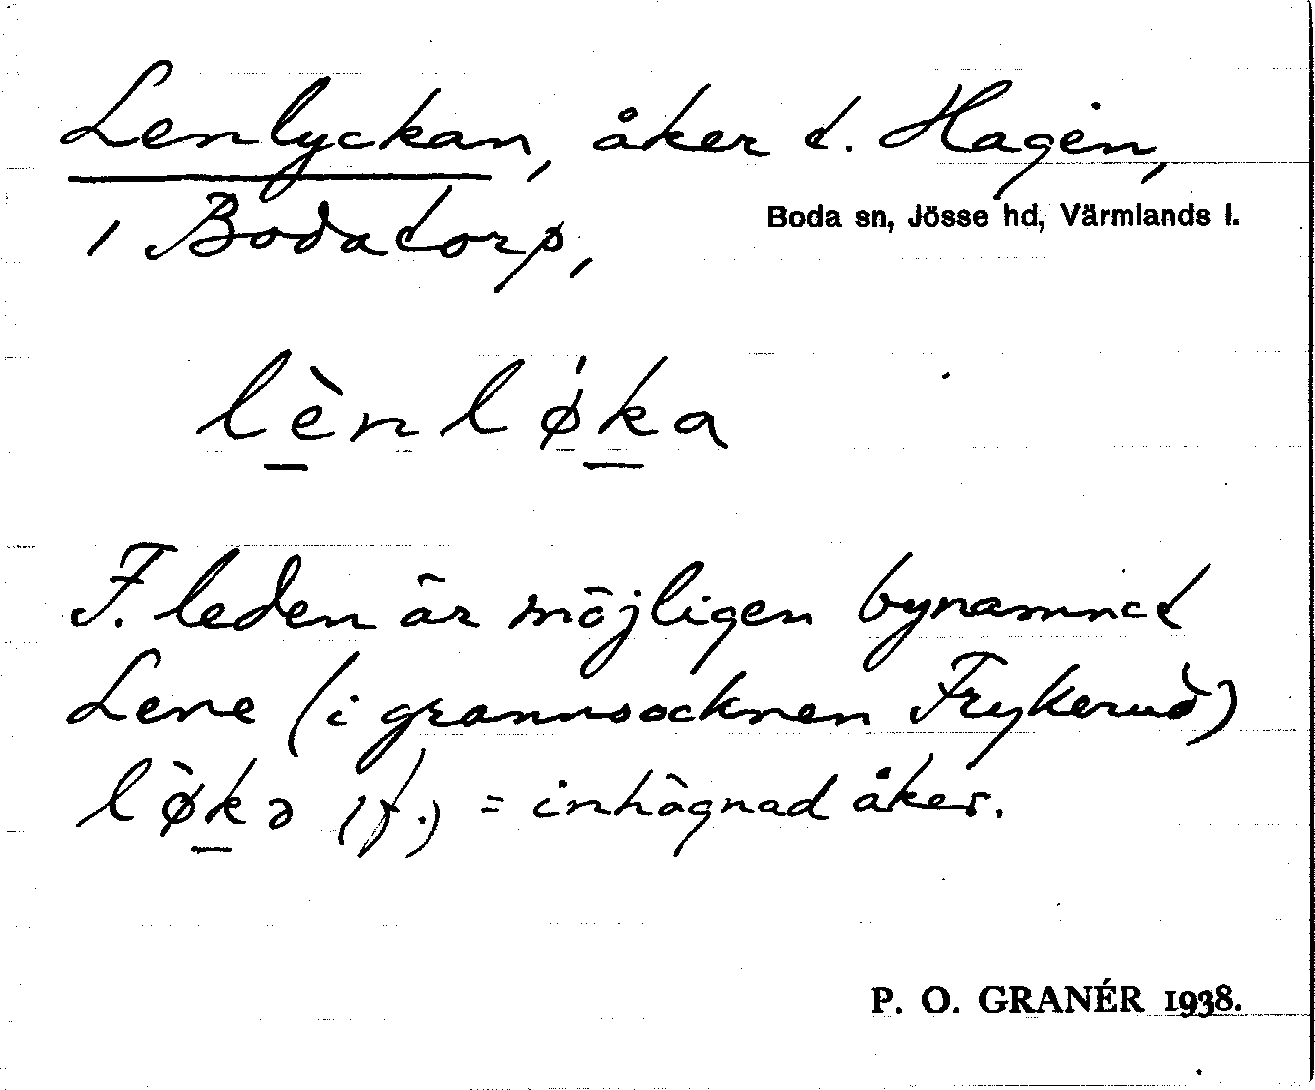 Lenlyckan, åker t. Hagen,
i Bodatorp,
Boda sn, Jösse hd, Värmlands l.
lènløka
F. leden är möjligen bynamnet
Lene (i grannsocknen Frykerud)
løkə (f.) = inhägnad åker.
P. O. GRANÉR 1938.